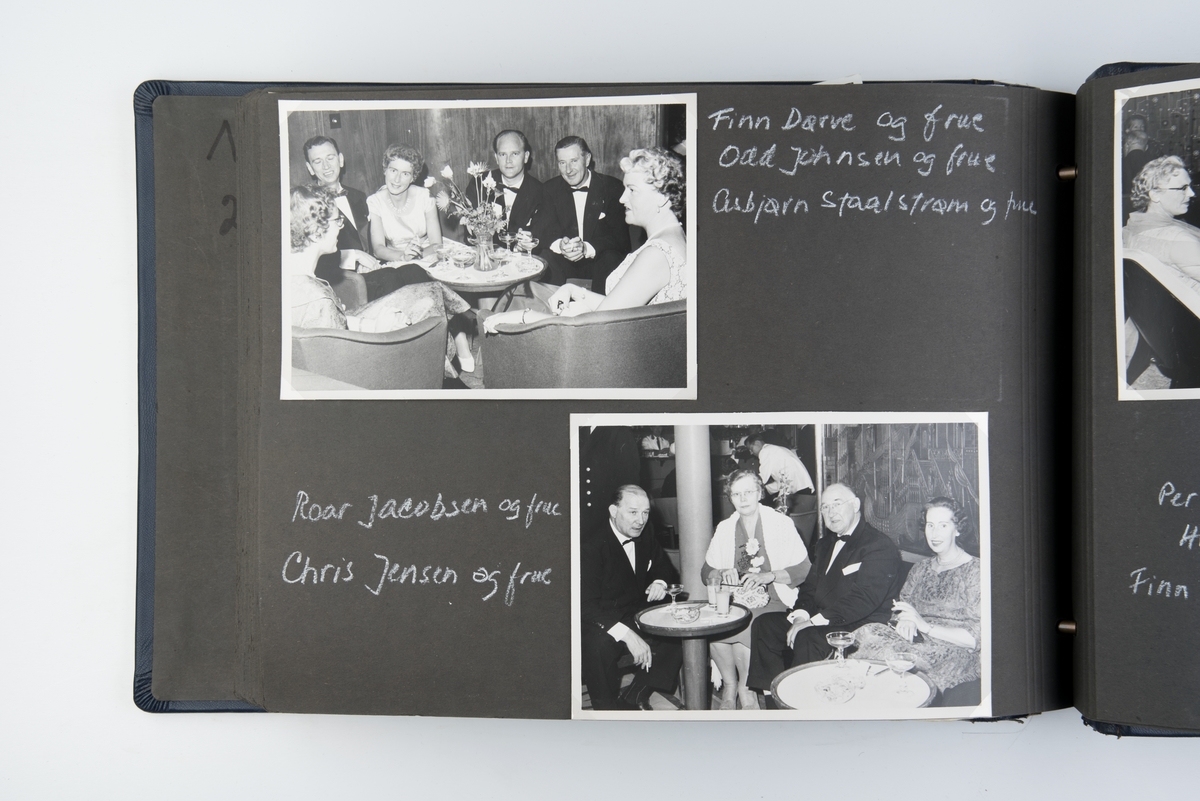 1
2
Finn Darve og frue
Odd Johnsen og frue
Asbjørn Staalstrøm og frue
Roar Jacobsen og frue
Chris Jensen og frue
Per
H
Finn